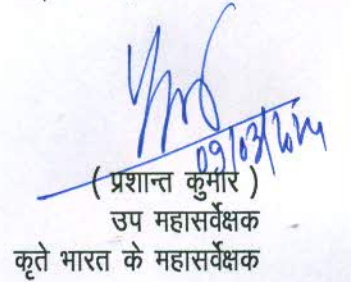 09/03/2014
( प्रशान्त कुमार )
उप महासर्वेक्षक
कृते भारत के महासर्वेक्षक